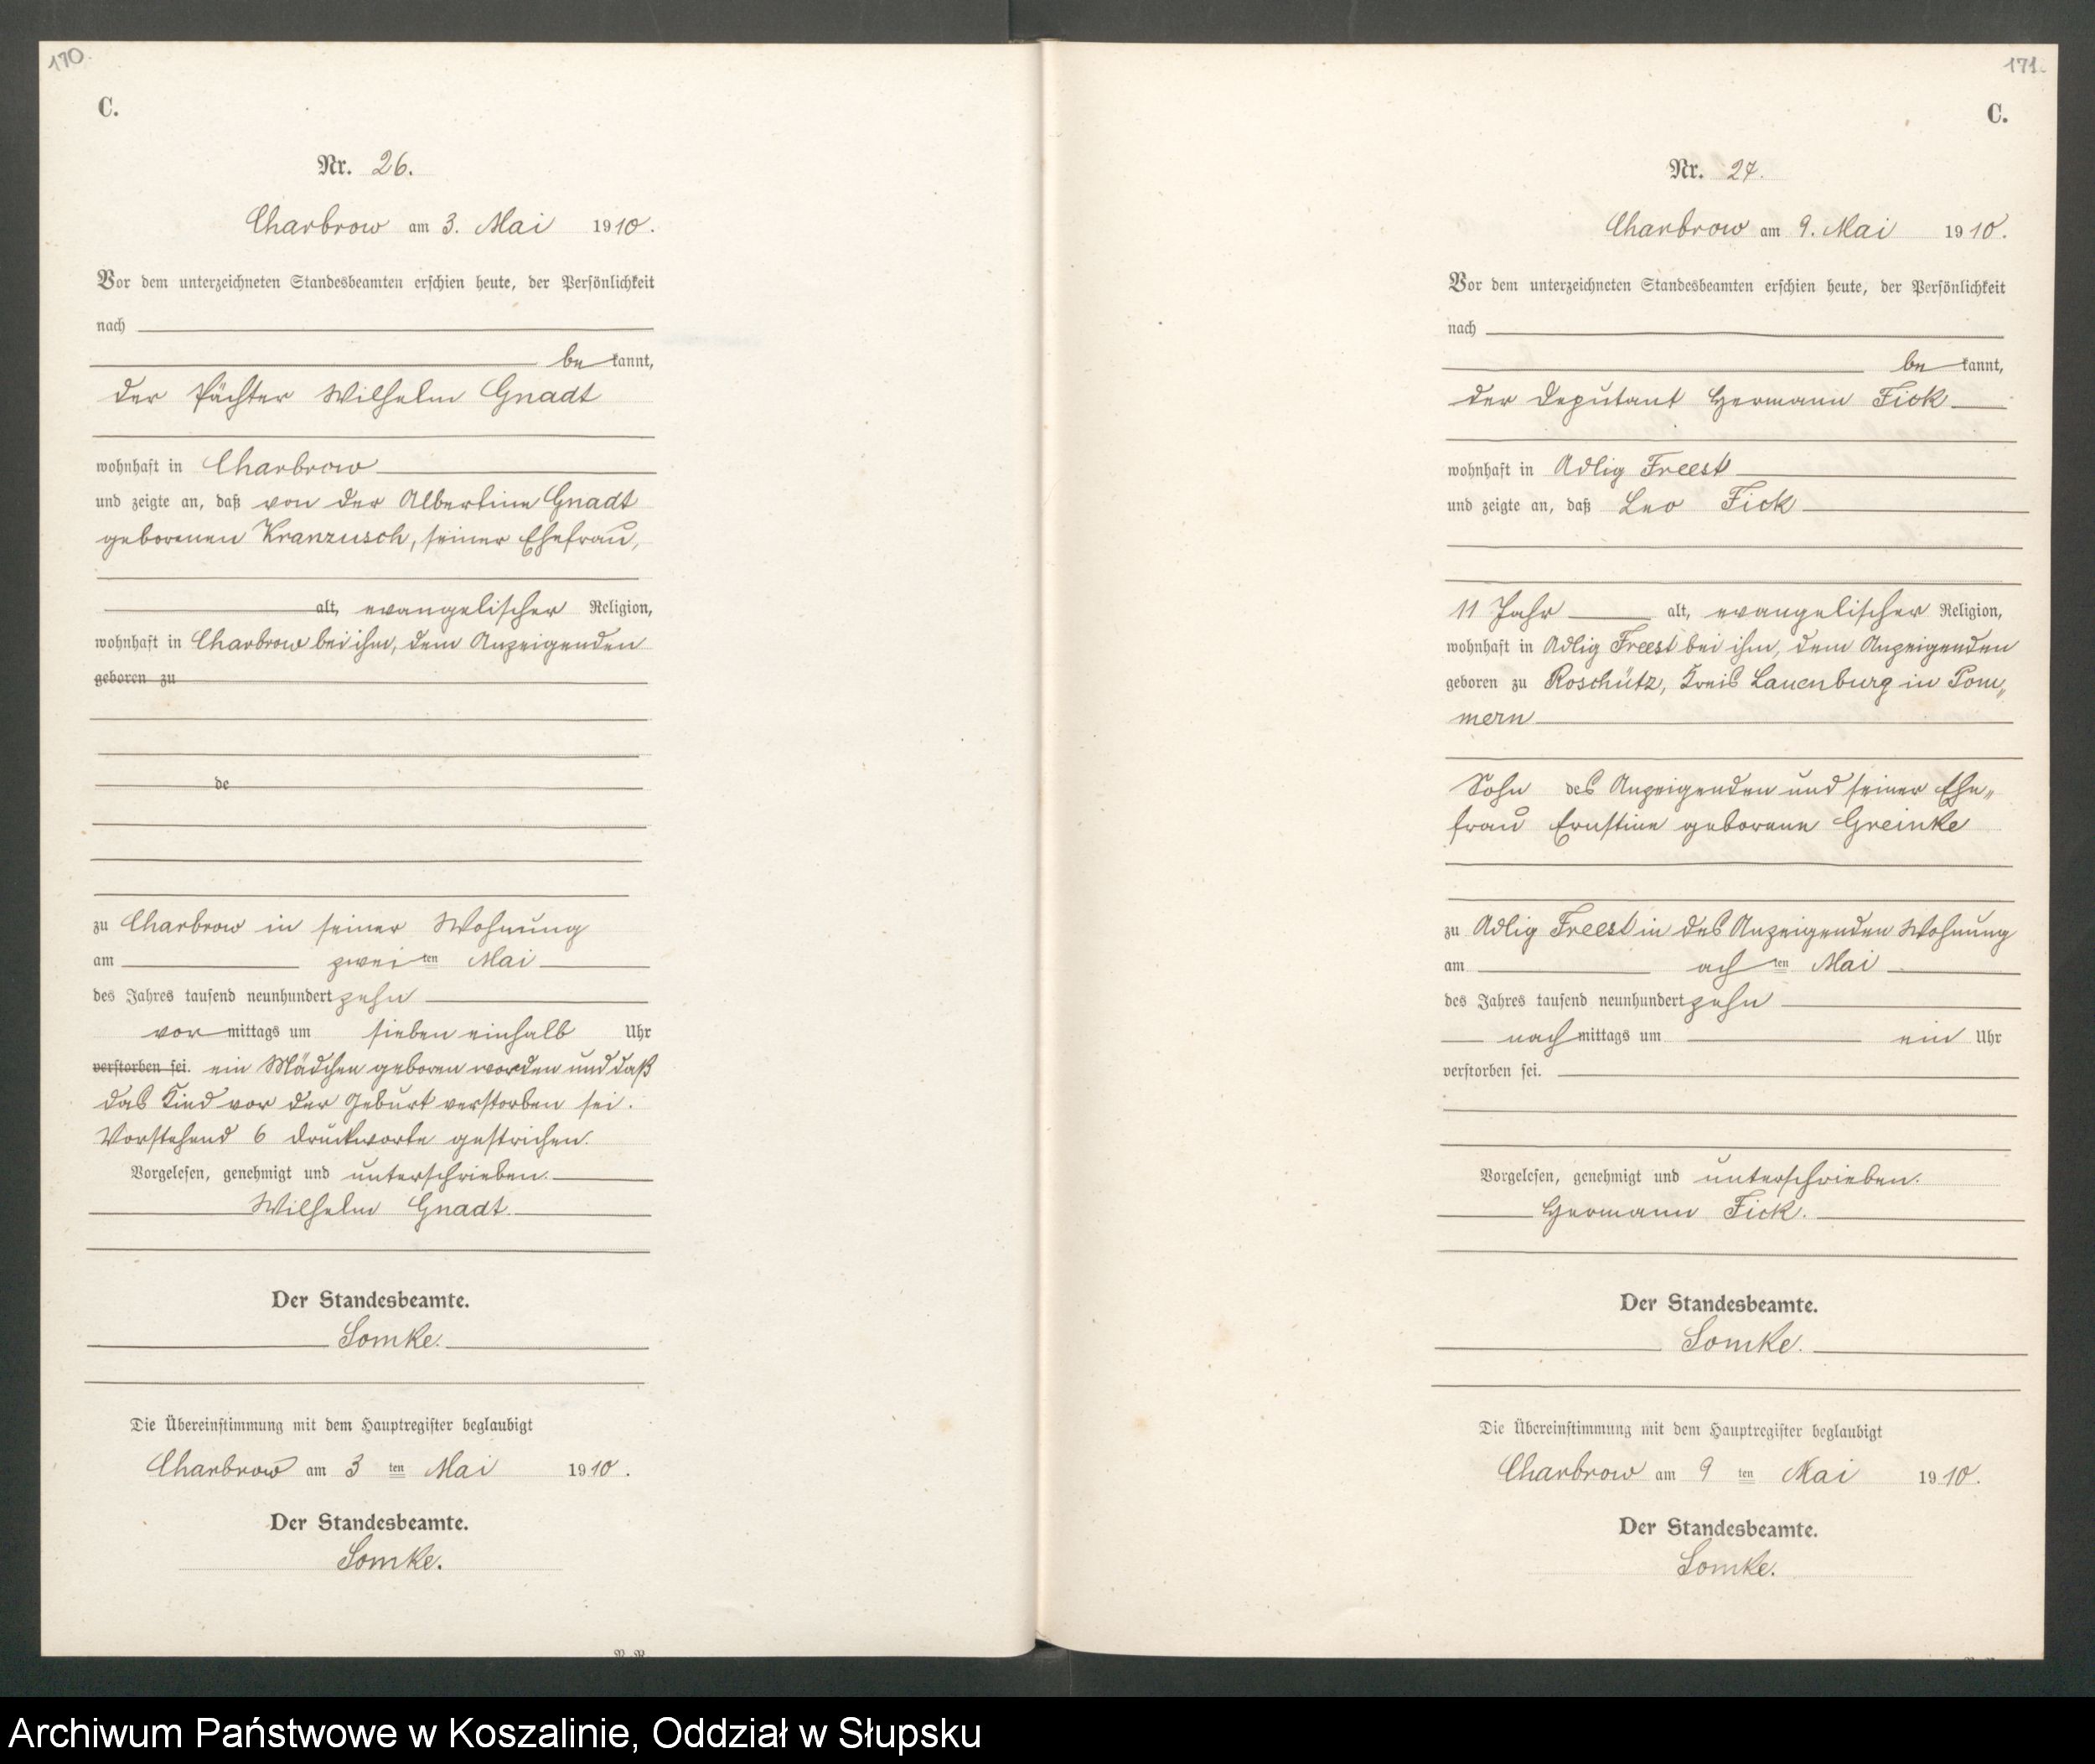 170.
C.
Nr. 26.
Charbrow am 3. Mai 1910.
Vor dem unterzeichneten Standesbeamten erschien heute, der Persönlichkeit
nach
be kannt,
der Pächter Wilhelm Gnadt
wohnhaft in Charbrow
und zeigte an, daß von der Albertine Gnadt
geborenen Kranzusch, seiner Ehefrau,
alt, evangelischer Religion,
wohnhaft in Charbrow bei ihm, dem Anzeigenden
geboren zu
de
zu Charbrow in seiner Wohnung
am zwei ten Mai
des Jahres tausend neunhundert zehn
vor mittags um sieben einhalb Uhr
verstorben sei. ein Mädchen geboren worden und daß
das Kind vor der Geburt verstorben sei.
Vorstehend 6 Druckworte gestrichen.
Vorgelesen, genehmigt und unterschrieben.
Wilhelm Gnadt.
Der Standesbeamte.
Lomke.
Die Übereinstimmung mit dem Hauptregister beglaubigt
Charbrow am 3 ten Mai 1910.
Der Standesbeamte.
Lomke.
171.
C.
Nr. 27.
Charbrow am 9. Mai 1910.
Vor dem unterzeichneten Standesbeamten erschien heute, der Persönlichkeit
nach
be kannt,
der Deputant Hermann Fick
wohnhaft in Adlig Freest
und zeigte an, daß Leo Fick
11 Jahr alt, evangelischer Religion,
wohnhaft in Adlig Freest bei ihm, dem Anzeigenden
geboren zu Roschütz, Kreis Lauenburg in Pom„
mern
Sohn des Anzeigenden und seiner Ehe„
frau Ernstine geborene Greinke
zu Adlig Freest in des Anzeigenden Wohnung
am ach ten Mai
des Jahres tausend neunhundert zehn
nach mittags um ein Uhr
verstorben sei.
Vorgelesen, genehmigt und unterschrieben.
Hermann Fick.
Der Standesbeamte.
Lomke.
Die Übereinstimmung mit dem Hauptregister beglaubigt
Charbrow am 9 ten Mai 1910.
Der Standesbeamte.
Lomke.
Archiwum Państwowe w Koszalinie, Oddział w Słupsku